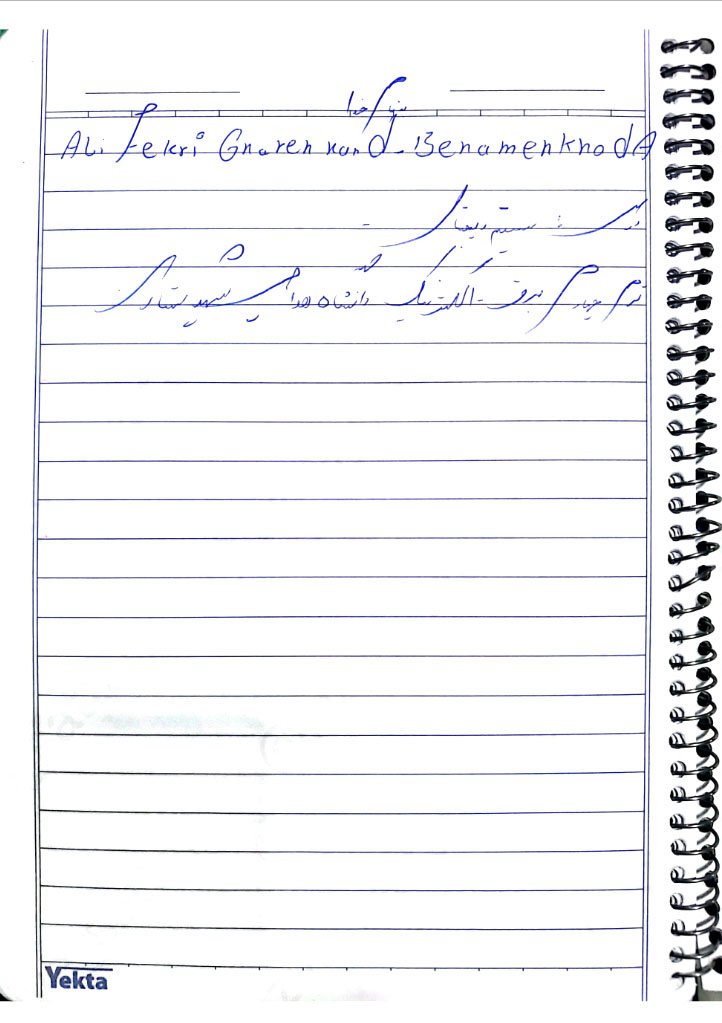 بنام خدا
Ali Fekri Gnaren kand - BenamenkhodA
درس : سیستم دیجیتال -
ترم چهارم برق - الکترونیک دانشگاه هوایی شهید ستاری
Yekta